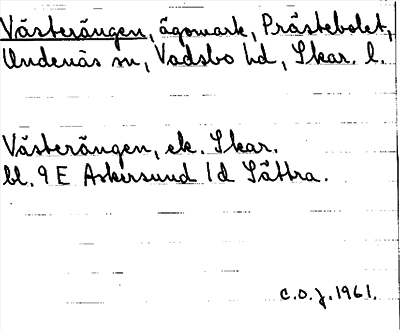 Västerängen, ägomark, Prästebolet,
Undenäs sn, Vadsbo hd, Skar. l.
Västerängen, ek. Skar.
bl. 9 E Askersund 1d Sättra.
C.O.J. 1961.